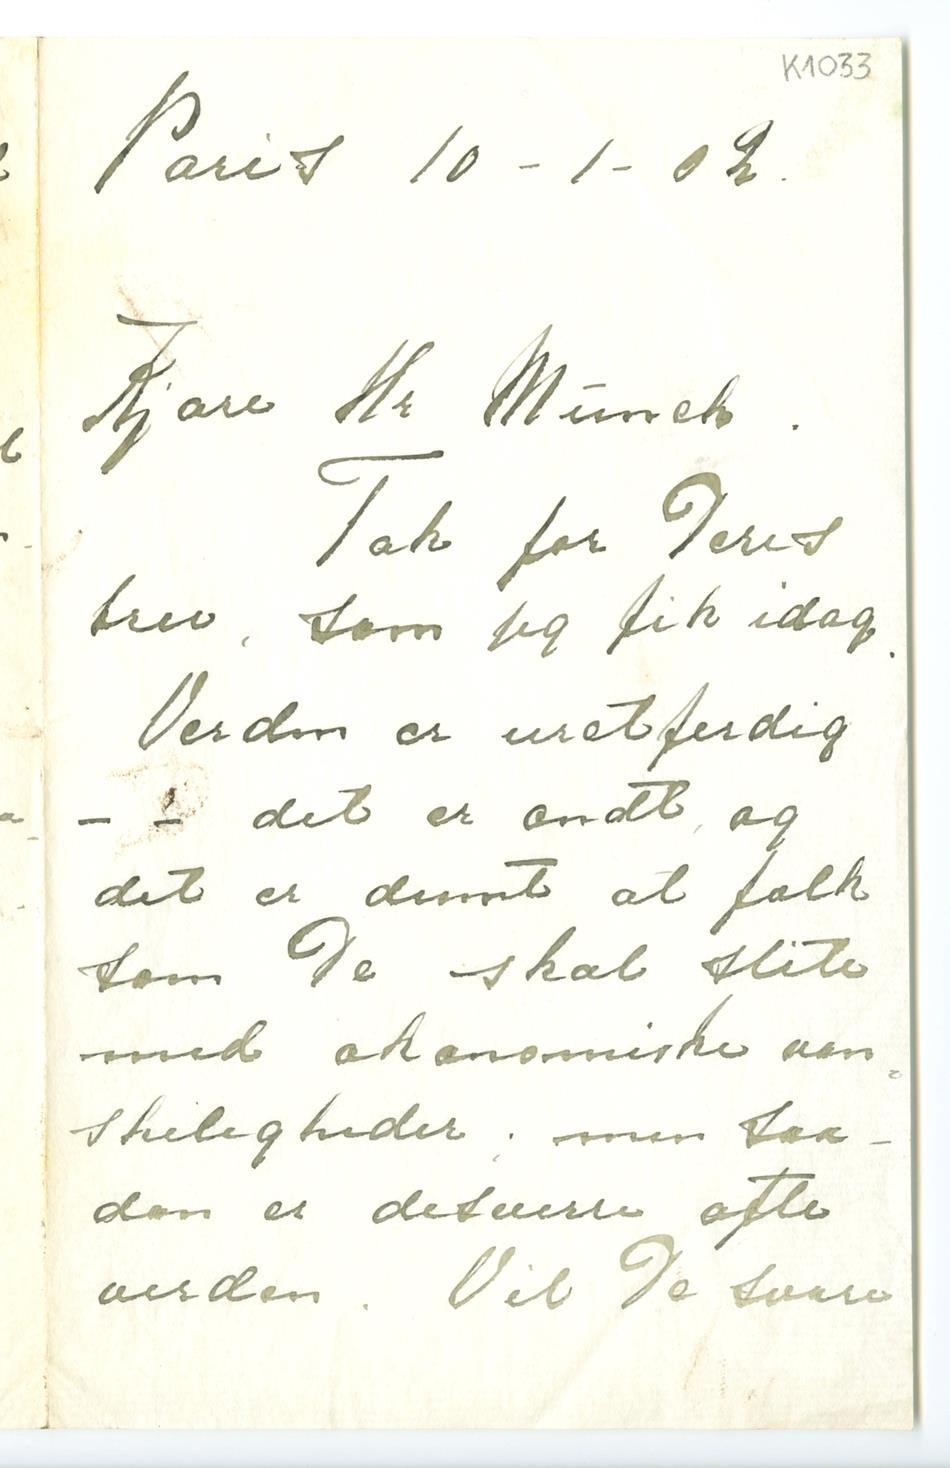 K1033
Paris 10-1-02.
Kjære Hr Munch.
Tak for Deres
brev, som jeg fik idag.
Verden er uretferdig
- - det er ondt, og
det er dumt at folk
som De skal slite
med økonomiske van-
skeligheder, men saa-
dan er desverre ofte
verden. Vil De svare